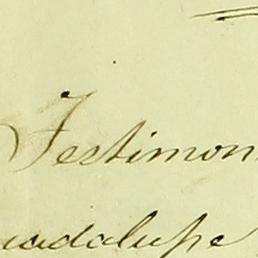 Testimon
uadalupe